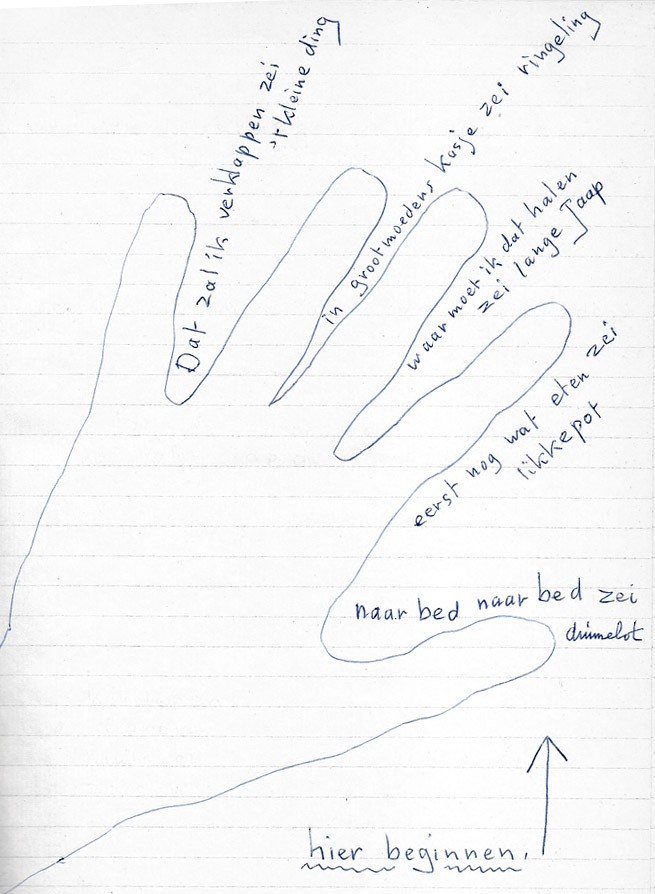 Dat zal ik verklappen zei
't kleine ding
in grootmoeders kasje zei ringeling
waar moet ik dat halen
zei lange Jaap
eerst nog wat eten zei
likkepot
naar bed naar bed zei
duimelot
hier beginnen.